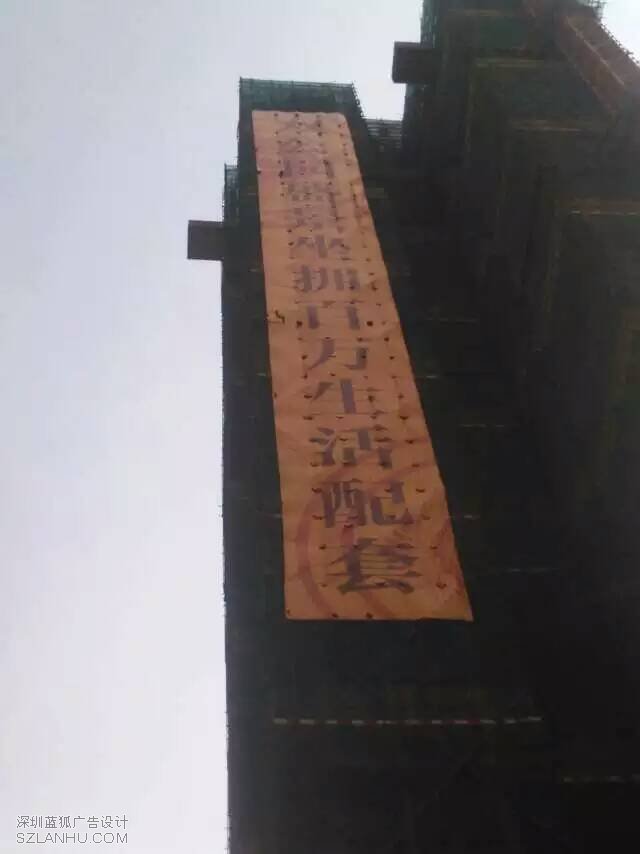 坐拥百万生活配套
深圳蓝狐广告设计
SZLANHU.COM